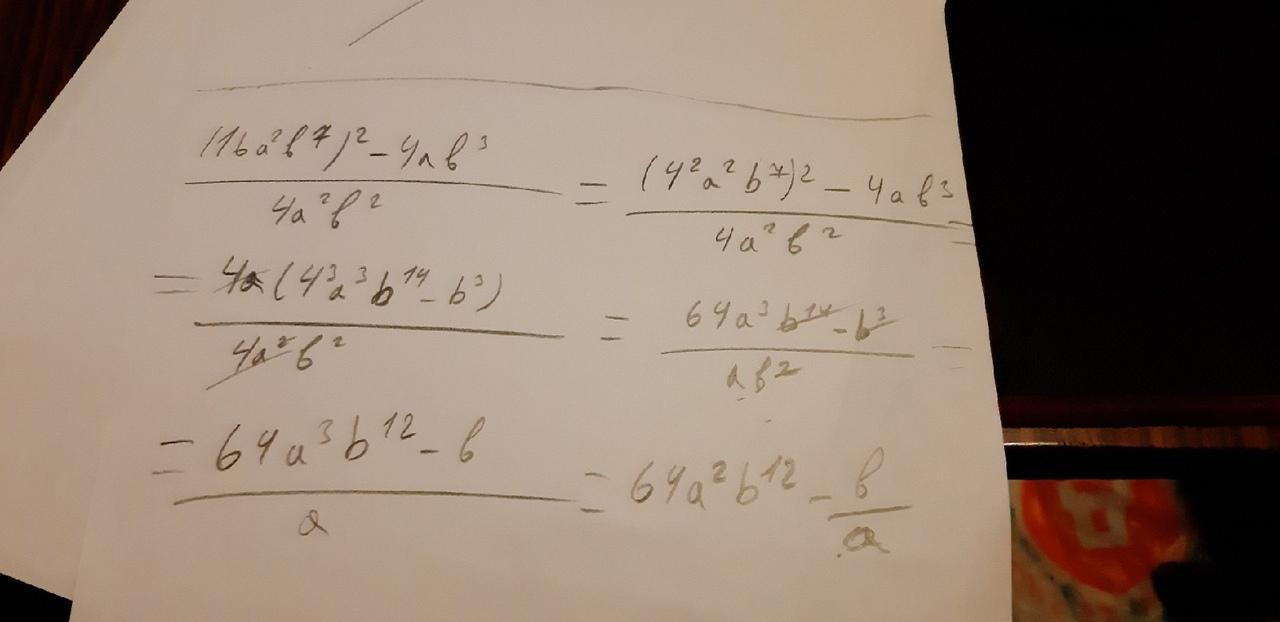 (16a²b⁷)² - 4ab³ / 4a²b² = (4²a²b⁷)² - 4ab³ / 4a²b² =
= 4a(4³a³b¹⁴ - b³) / 4a²b² = 64a³b¹⁴ - b³ / ab² =
= 64a³b¹² - b / a = 64a²b¹² - b / a